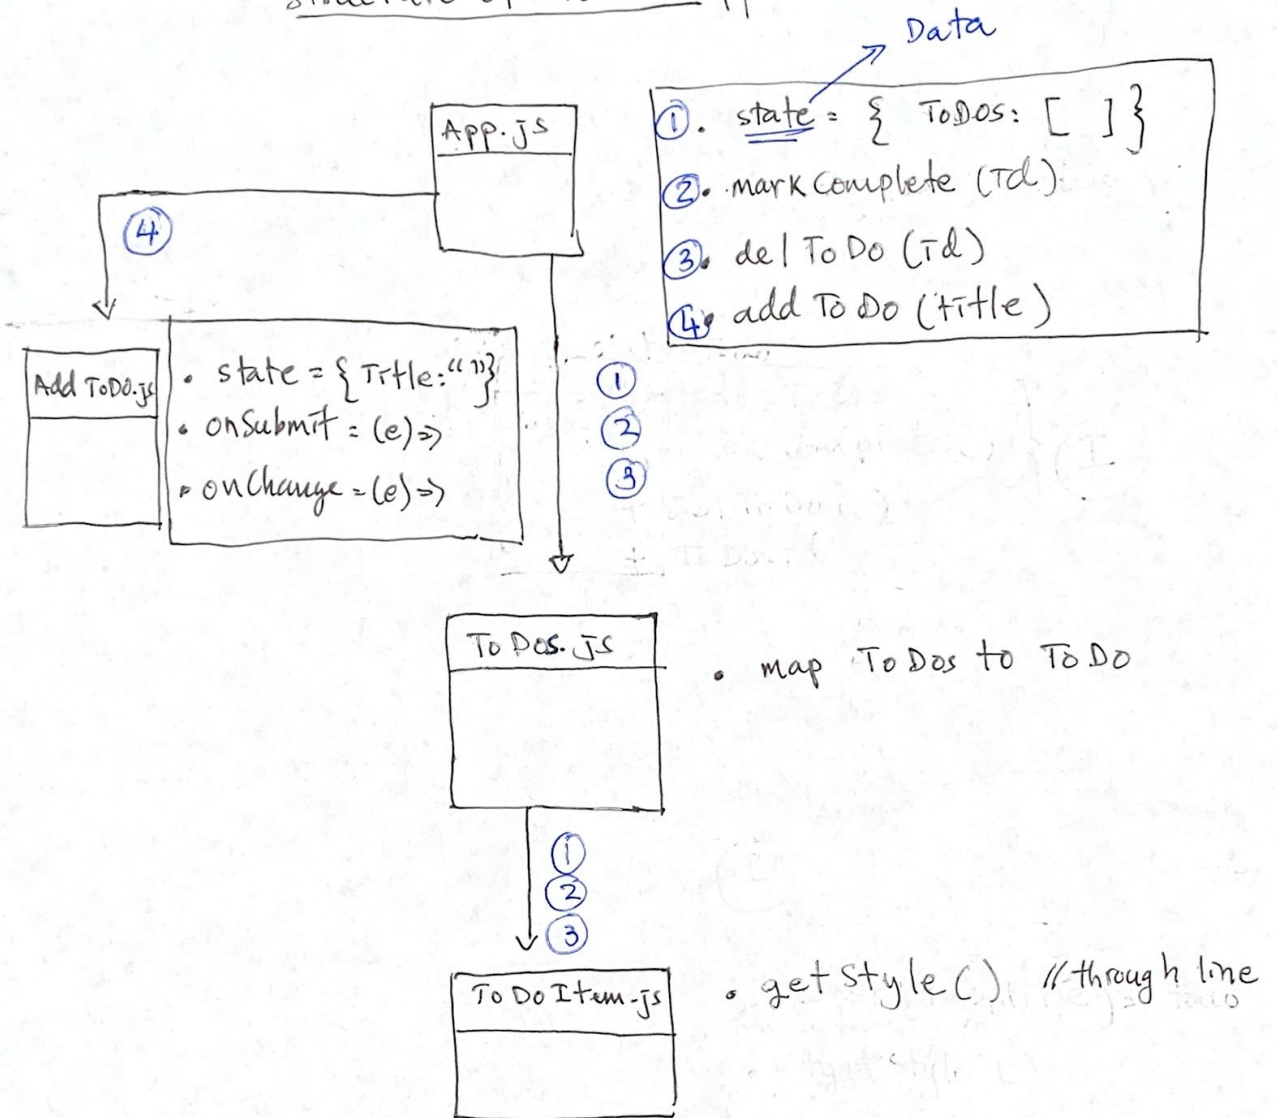 Data
App.js
①. state = { ToDos: [ ] }
②. markComplete (Id)
③. del ToDo (Id)
④. add ToDo (title)
④
Add ToDo.js
• state = { Title: “ ” }
• onSubmit = (e) =>
• onChange = (e) =>
①
②
③
To Dos.js
• map ToDos to ToDo
①
②
③
To Do Item.js
• getStyle() // through line